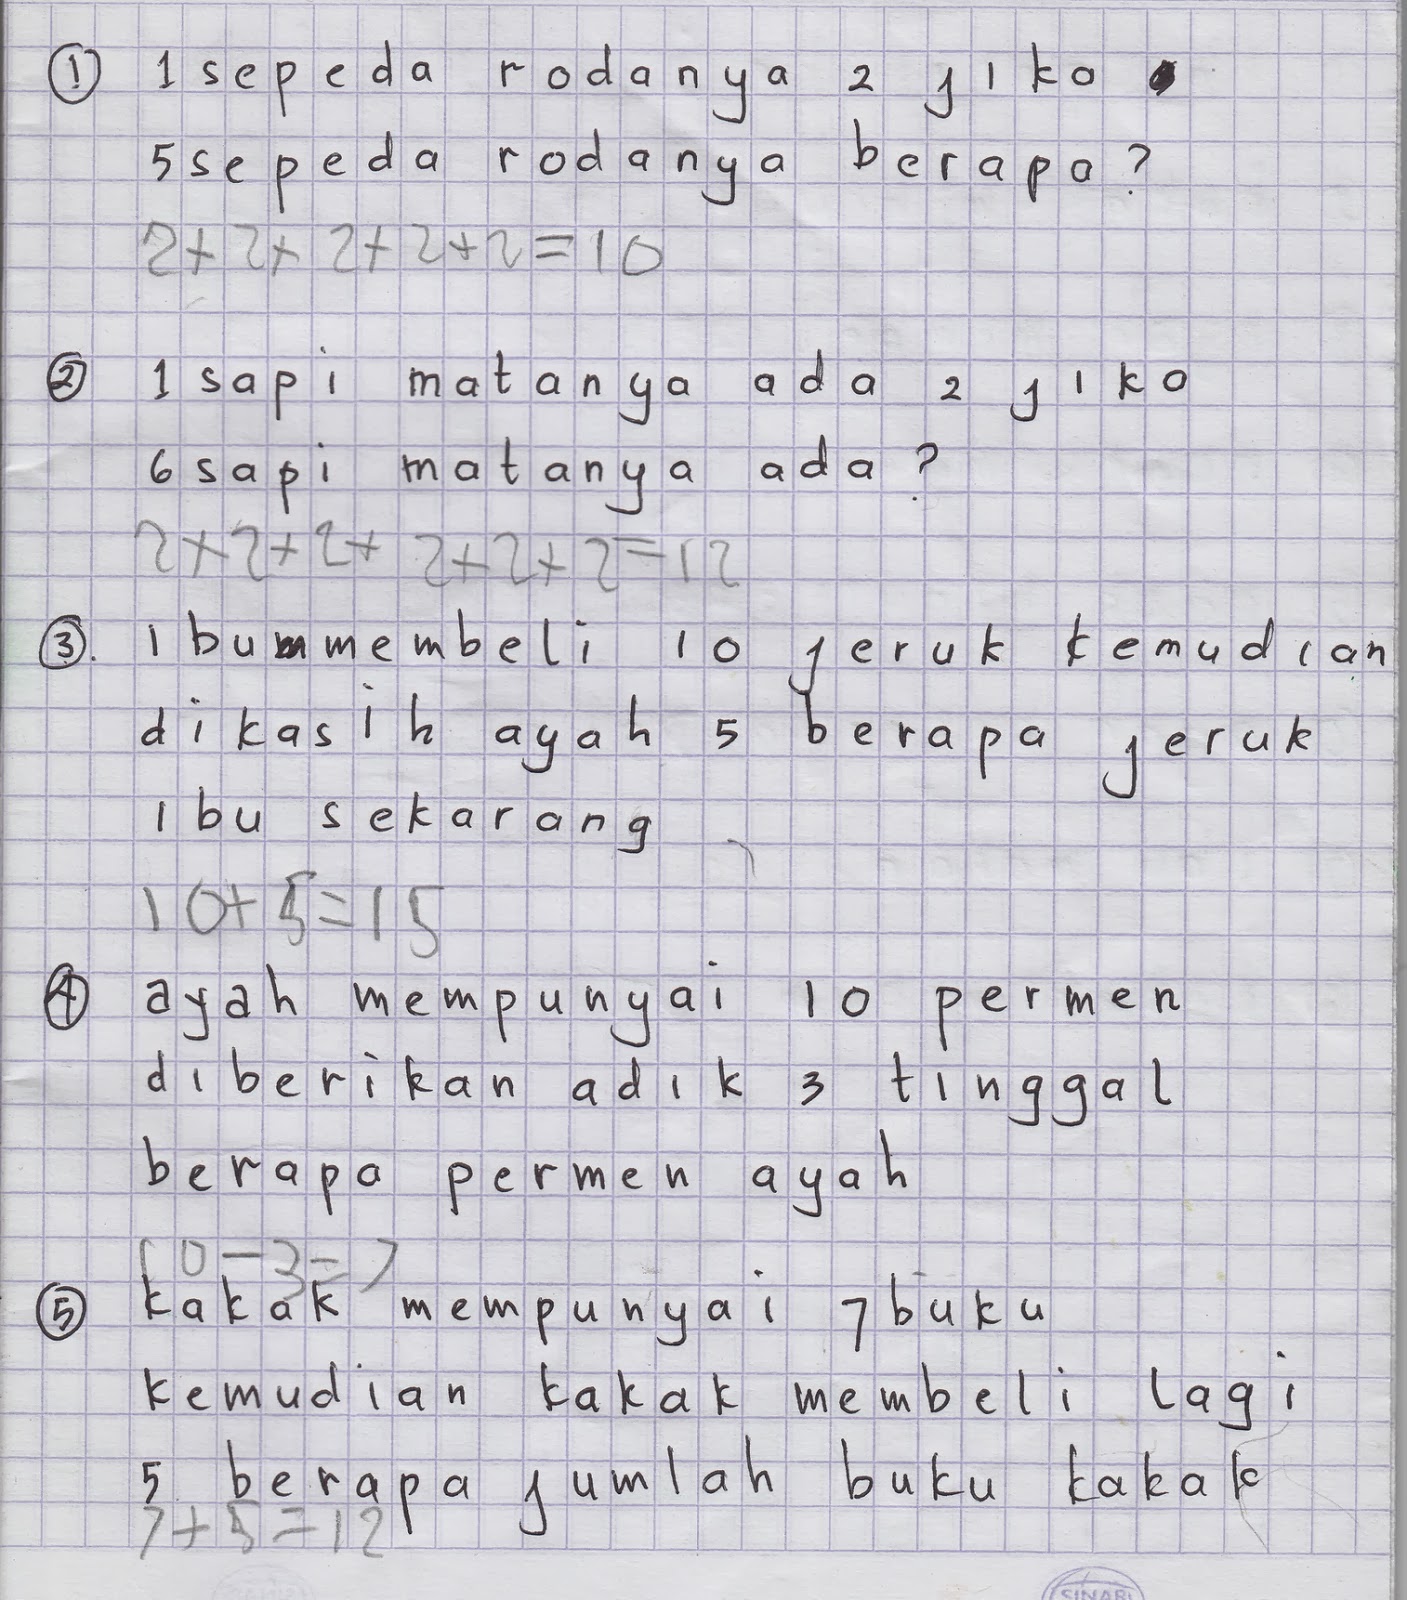 ① 1 sepeda rodanya 2 jiko
5 sepeda rodanya berapa?
2+2+2+2+2=10
② 1 sapi matanya ada 2 jiko
6 sapi matanya ada?
2+2+2+2+2+2=12
③. ibu membeli 10 jeruk kemudian
dikasih ayah 5 berapa jeruk
ibu sekarang
10+5=15
④ ayah mempunyai 10 permen
diberikan adik 3 tinggal
berapa permen ayah
10-3=7
⑤ kakak mempunyai 7 buku
kemudian kakak membeli lagi
5 berapa jumlah buku kakak
7+5=12